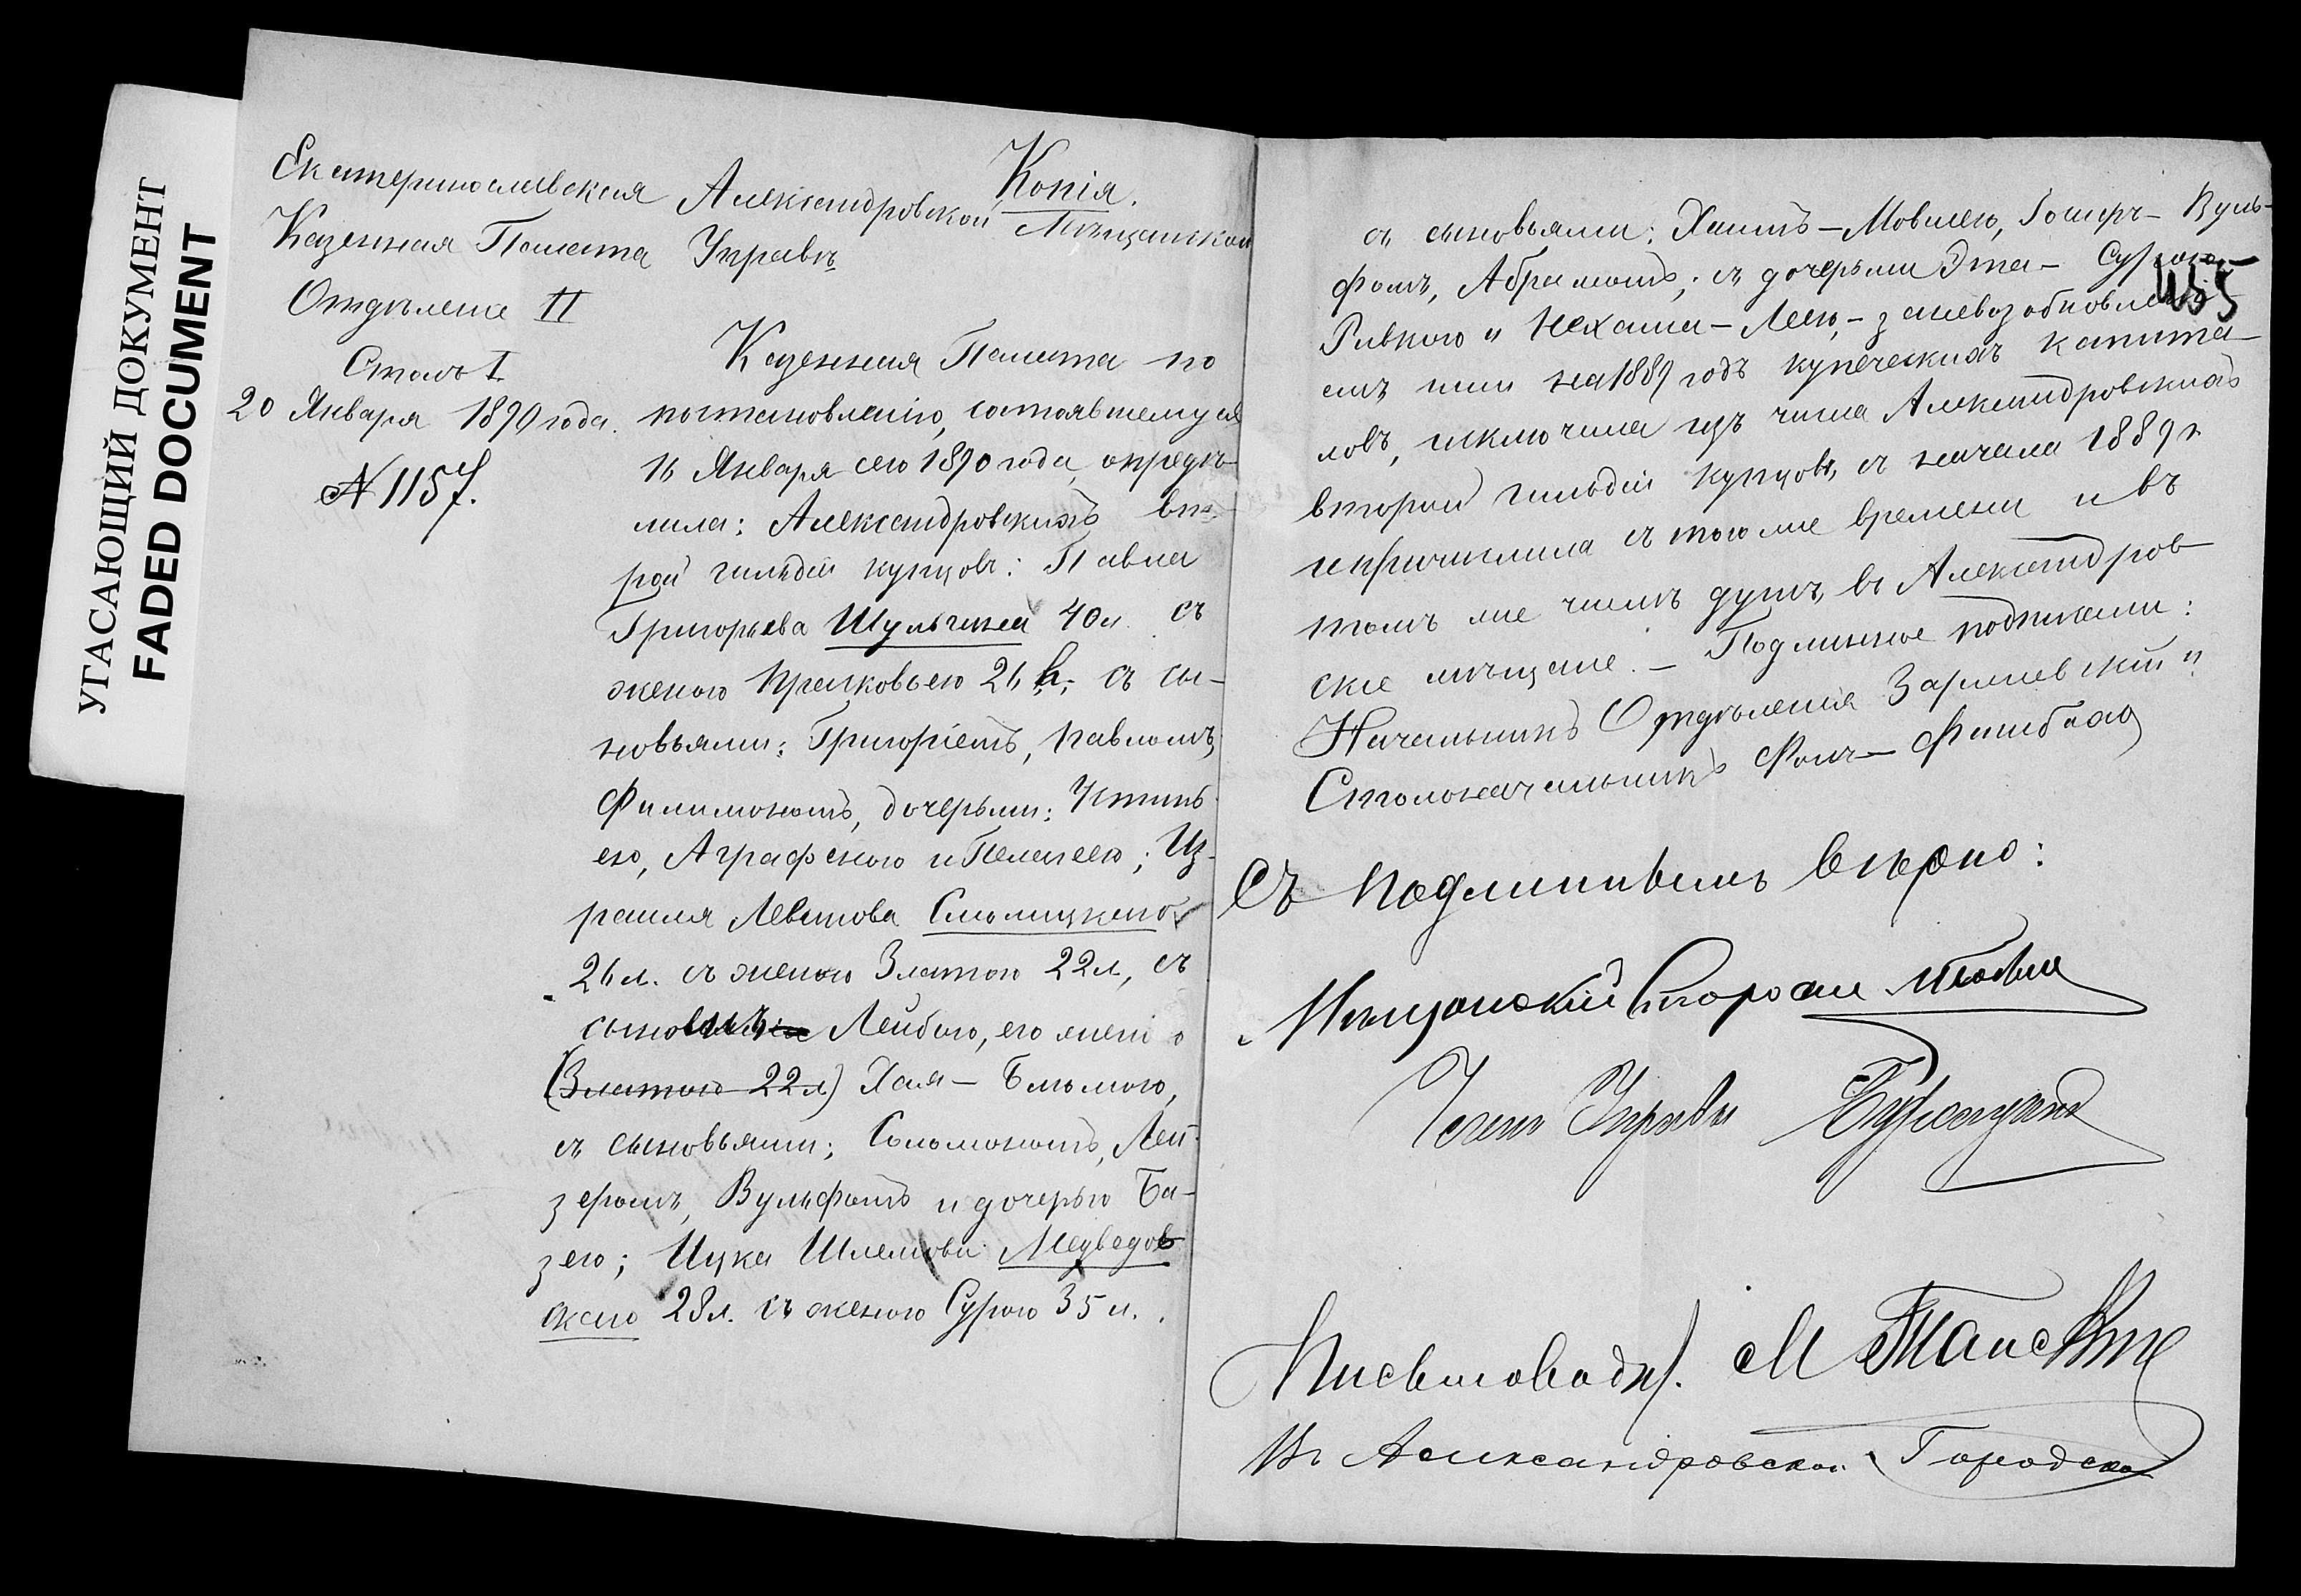 УГАСАЮЩИЙ ДОКУМЕНТ
FADED DOCUMENT
Копія.
Екатеринославская
Казенная Палата
Отдѣленіе II
Столъ I
20 Января 1890 года.
№ 1157.
Александровской Мѣщанской
Управѣ
Казенная Палата по
постановленію, состоявшемуся
16 Января сего 1890 года, опредѣ-
лила: Александровскихъ вто-
рой гильдіи купцовъ: Павла
Григорьева Шульгина 40 л. съ
женою Прасковьею 26 л., съ сы-
новьями: Григоріемъ, Павломъ,
Филимономъ, дочерьми: Устинь-
ею, Аграфеною и Пелагеею; Из-
раиля Левитова Смолицкаго
26 л. съ женою Златою 22 л, съ
сыномъ Лейбою, его женою
(Златою 22 л) Хая-Блюмою,
съ сыновьями; Соломономъ, Лей-
зеромъ, Вульфомъ и дочерью Ба-
зею; Ицка Шлемова Медведов-
скаго 28 л. съ женою Сурою 35 л.
455
съ сыновьями: Хаимъ-Мовшею, Іосифъ-Вуль-
фомъ, Абрамомъ; съ дочерьми Эта-Сурою,
Ривкою и Нехама-Леею,- за невозобновлені-
емъ ими на 1889 годъ купеческихъ капита-
ловъ, исключила изъ числа Александровскихъ
второй гильдіи купцовъ, съ начала 1889 г
и причислила съ того же времени и въ
томъ же числѣ душъ, въ Александров-
скіе мѣщане. - Подлинное подписали:
Начальникъ Отдѣленія и
Столоначальникъ Фонъ-
Съ подлиннымъ вѣрно:
Мѣщанскій Староста
Членъ Управы
Письмоводит. М
Въ Александровскую Городскую